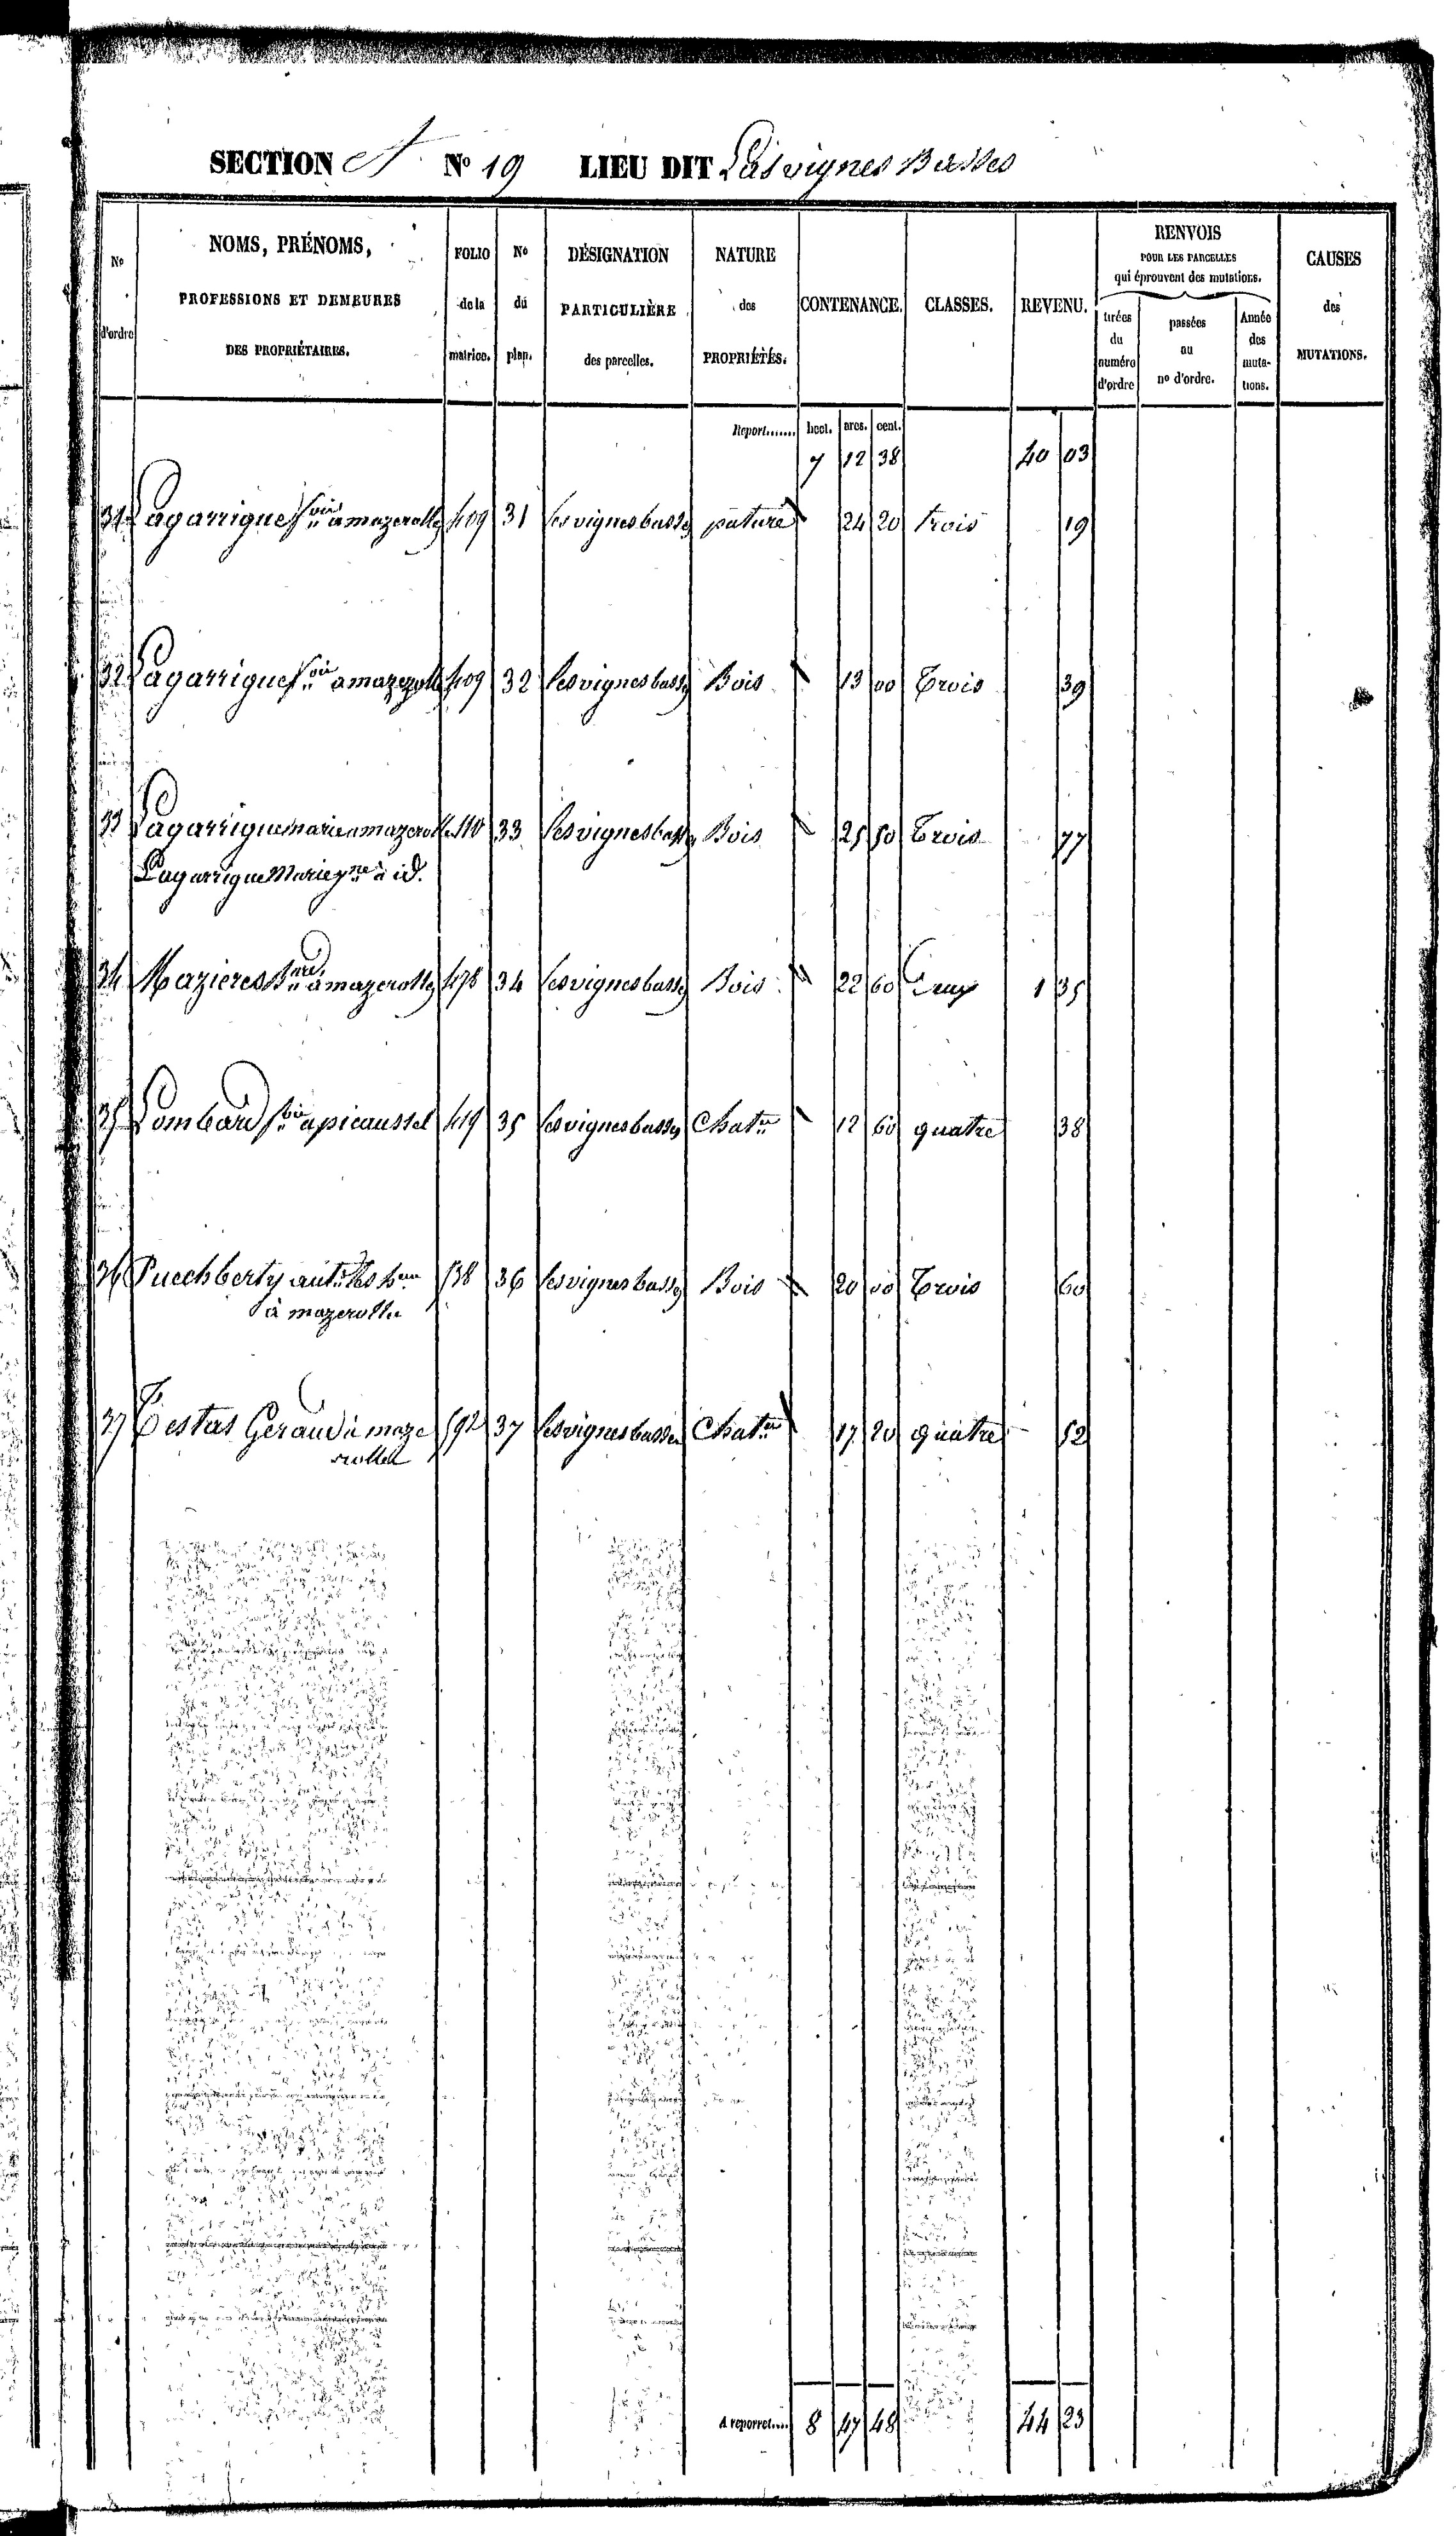 SECTION A N° 19 LIEU DIT Las vignes Basses
N° d'ordre | NOMS, PRÉNOMS, PROFESSIONS ET DEMEURES DES PROPRIÉTAIRES. | FOLIO de la matrice. | N° du plan. | DÉSIGNATION PARTICULIÈRE des parcelles. | NATURE des PROPRIÉTÉS. | CONTENANCE. | CLASSES. | REVENU. | RENVOIS POUR LES PARCELLES qui éprouvent des mutations. | CAUSES des MUTATIONS.
tirées du numéro d'ordre | passées au n° d'ordre. | Année des mutations.
Report....... hect. ares. cent.
7 12 38 40 03
31 Lagarrigue fois à mazerolles 409 31 les vignes basses pature " 24 20 trois 19
32 Lagarrigue fois à mazerolles 409 32 les vignes basses Bois " 13 00 Trois 39
33 Lagarrigue marie a mazerolles 410 33 les vignes basses Bois " 25 50 Trois 77
Lagarrigue Marie jne à id.
34 Mazieres Bnard à mazerolles 478 34 les vignes basses Bois " 22 60 Deux 1 35
35 Lombard fois a picaussel 419 35 les vignes basses Chatr " 12 60 quatre 38
36 Puechberty antne les hers 538 36 les vignes basses Bois " 20 00 Trois 60
à mazerolles
37 Testas Geraud à maze 592 37 les vignes basses Chatr " 17 20 quatre 52
rolles
A reporter.... 8 47 48 44 23